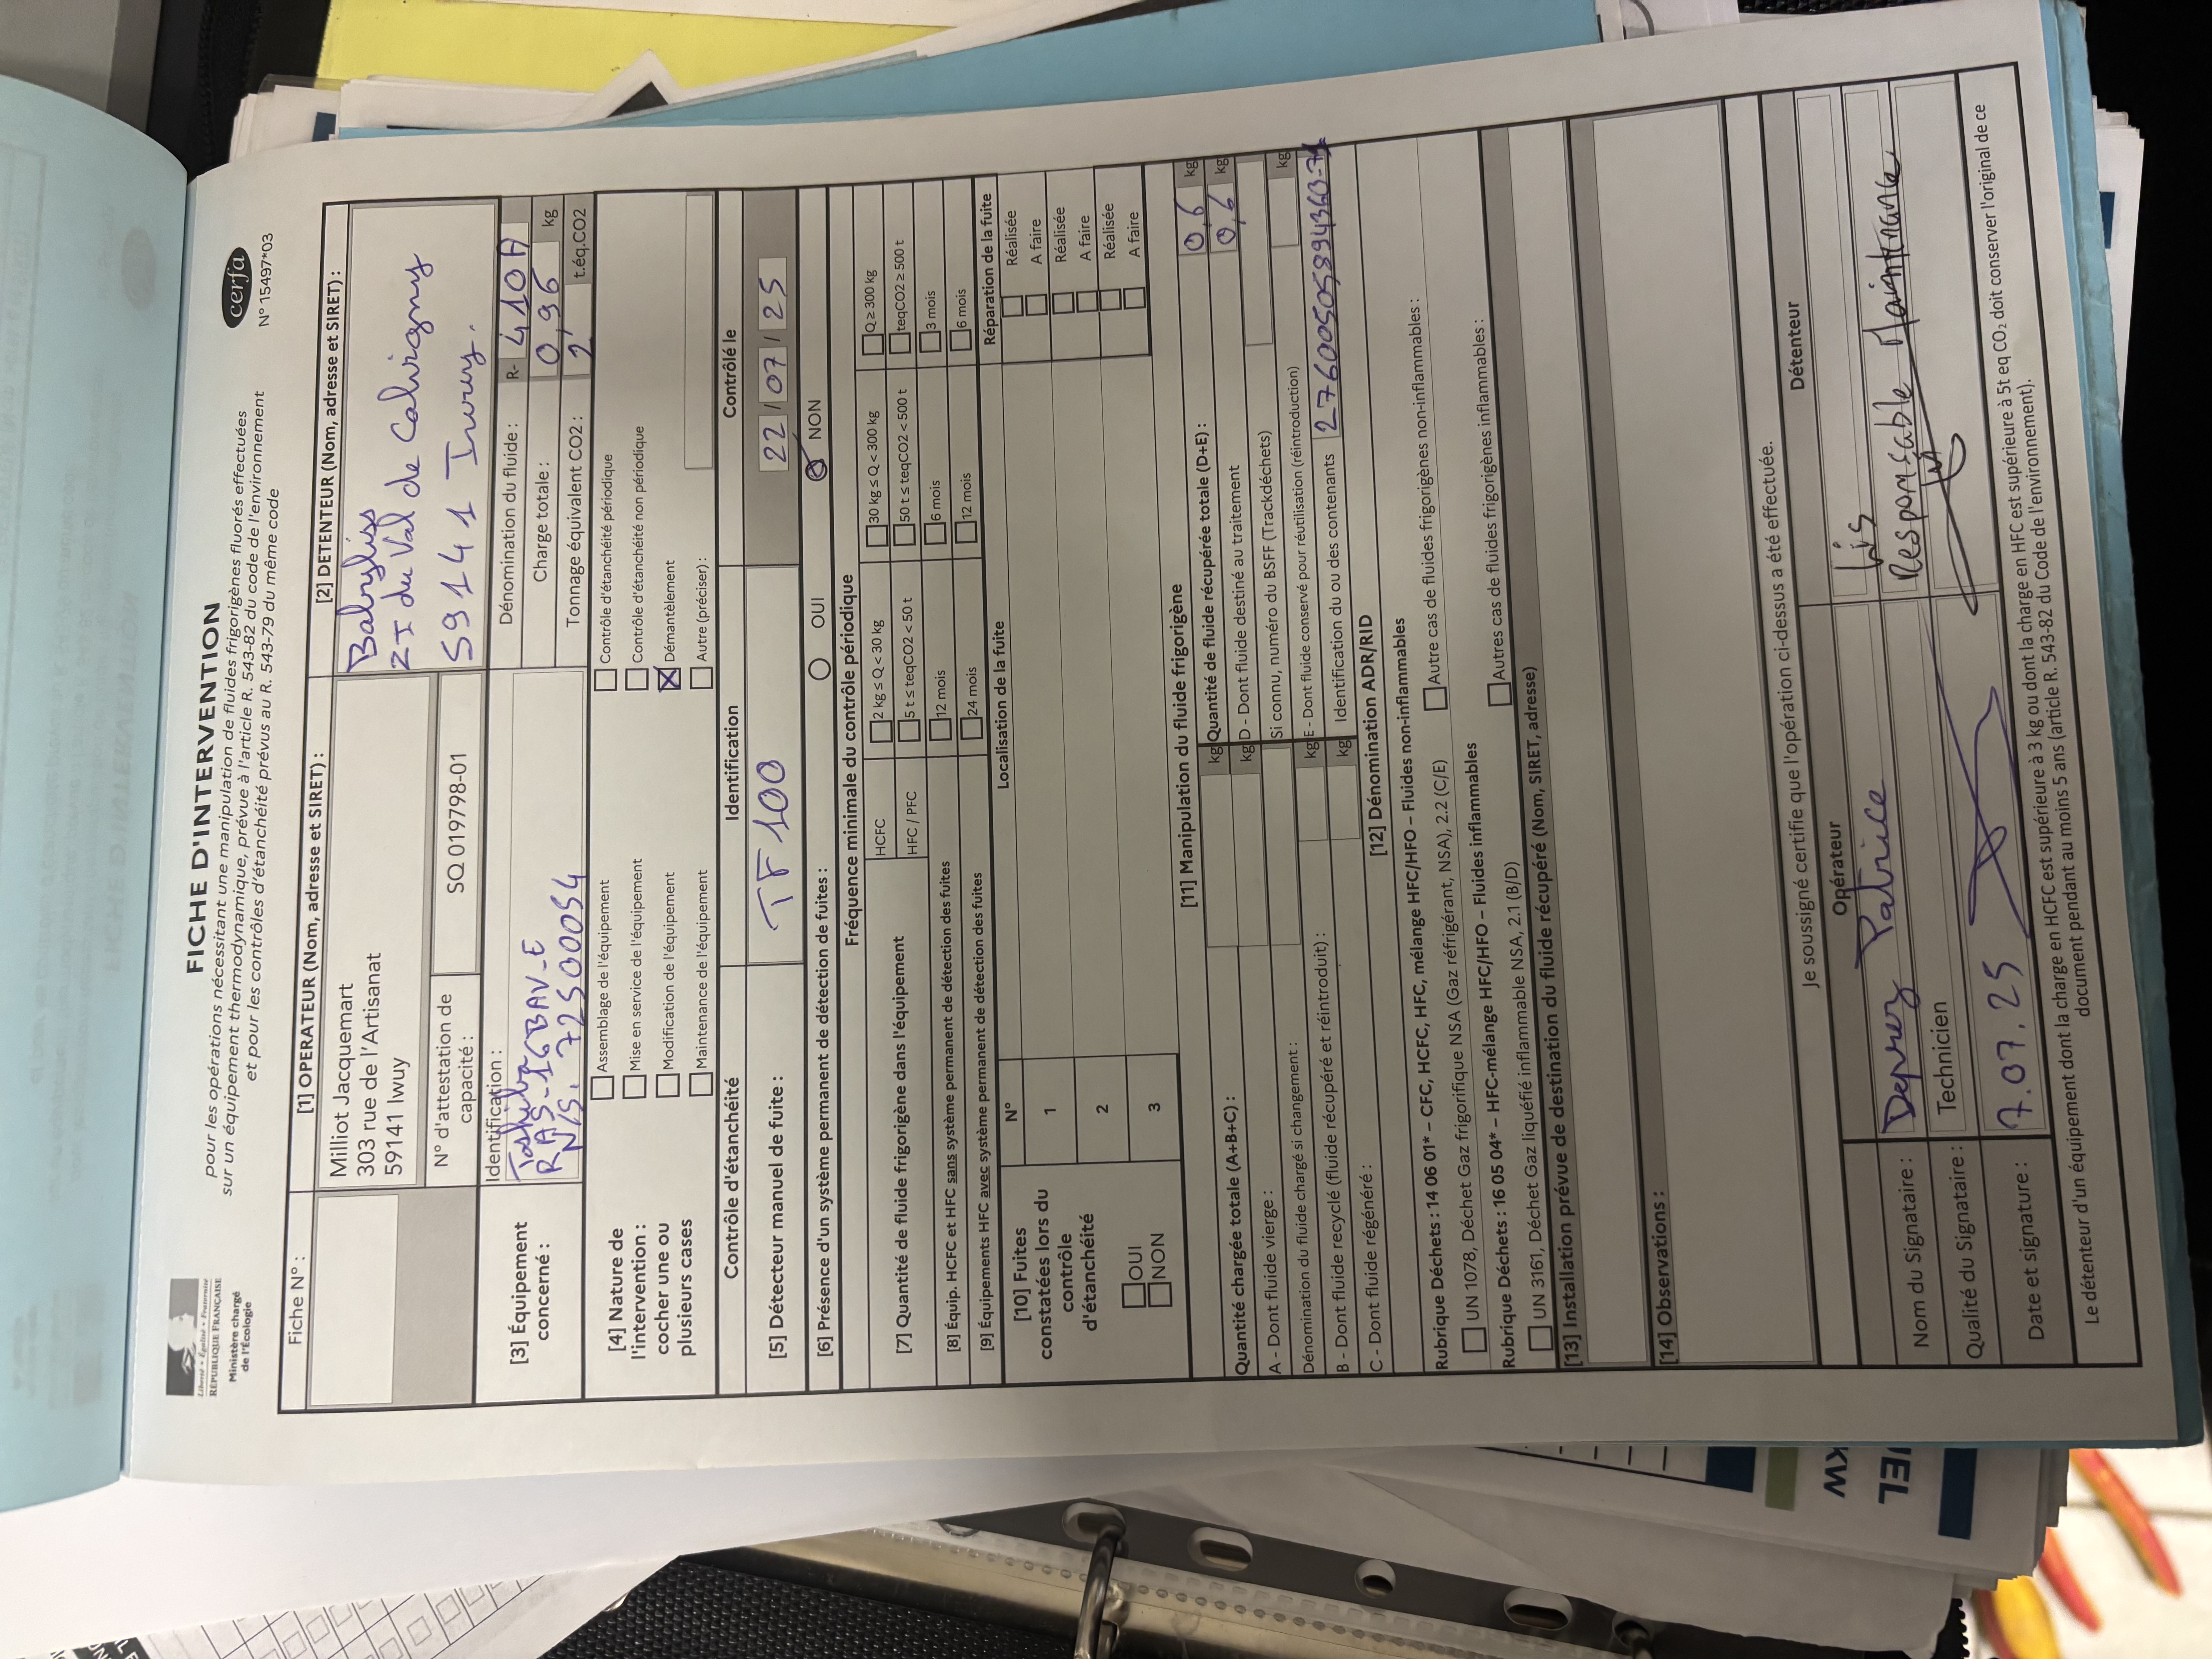 Liberté • Égalité • Fraternité
RÉPUBLIQUE FRANÇAISE
Ministère chargé
de l'Écologie
FICHE D'INTERVENTION
pour les opérations nécessitant une manipulation de fluides frigorigènes fluorés effectuées
sur un équipement thermodynamique, prévue à l'article R. 543-82 du code de l'environnement
et pour les contrôles d'étanchéité prévus au R. 543-79 du même code
cerfa
N° 15497*03
Fiche N° :
[1] OPERATEUR (Nom, adresse et SIRET) :
Milliot Jacquemart
303 rue de l'Artisanat
59141 Iwuy
N° d'attestation de
capacité :
SQ 019798-01
[2] DETENTEUR (Nom, adresse et SIRET) :
Babyliss
ZI du Val de Calvigny
59141 Iwuy.
[3] Équipement
concerné :
Identification :
Toshiba
RAS-16BAV-E
N/S. 72500054
Dénomination du fluide :
R- 410A
Charge totale :
0,96 kg
Tonnage équivalent CO2 :
2, t.éq.CO2
[4] Nature de
l'intervention :
cocher une ou
plusieurs cases
Assemblage de l'équipement
Mise en service de l'équipement
Modification de l'équipement
Maintenance de l'équipement
Contrôle d'étanchéité périodique
Contrôle d'étanchéité non périodique
Démantèlement
Autre (préciser) :
Contrôle d'étanchéité
Identification
Contrôlé le
[5] Détecteur manuel de fuite :
TF 100
22 / 07 / 25
[6] Présence d'un système permanent de détection de fuites :
OUI
NON
Fréquence minimale du contrôle périodique
[7] Quantité de fluide frigorigène dans l'équipement
HCFC
2 kg ≤ Q < 30 kg
30 kg ≤ Q < 300 kg
Q ≥ 300 kg
HFC / PFC
5 t ≤ teqCO2 < 50 t
50 t ≤ teqCO2 < 500 t
teqCO2 ≥ 500 t
[8] Équip. HCFC et HFC sans système permanent de détection des fuites
12 mois
6 mois
3 mois
[9] Équipements HFC avec système permanent de détection des fuites
24 mois
12 mois
6 mois
[10] Fuites
constatées lors du
contrôle
d'étanchéité
OUI
NON
N°
Localisation de la fuite
Réparation de la fuite
1
Réalisée
A faire
2
Réalisée
A faire
3
Réalisée
A faire
[11] Manipulation du fluide frigorigène
Quantité chargée totale (A+B+C) :
kg
A - Dont fluide vierge :
kg
Dénomination du fluide chargé si changement :
B - Dont fluide recyclé (fluide récupéré et réintroduit) :
kg
C - Dont fluide régénéré :
kg
Quantité de fluide récupérée totale (D+E) :
0,6 kg
D - Dont fluide destiné au traitement
0,6 kg
Si connu, numéro du BSFF (Trackdéchets)
E - Dont fluide conservé pour réutilisation (réintroduction)
kg
Identification du ou des contenants
[12] Dénomination ADR/RID
Rubrique Déchets : 14 06 01* – CFC, HCFC, HFC, mélange HFC/HFO – Fluides non-inflammables
UN 1078, Déchet Gaz frigorifique NSA (Gaz réfrigérant, NSA), 2.2 (C/E)
Autre cas de fluides frigorigènes non-inflammables :
Rubrique Déchets : 16 05 04* – HFC-mélange HFC/HFO – Fluides inflammables
UN 3161, Déchet Gaz liquéfié inflammable NSA, 2.1 (B/D)
Autres cas de fluides frigorigènes inflammables :
[13] Installation prévue de destination du fluide récupéré (Nom, SIRET, adresse)
[14] Observations :
Je soussigné certifie que l'opération ci-dessus a été effectuée.
Opérateur
Détenteur
Nom du Signataire :
Patrice
Qualité du Signataire :
Technicien
Responsable Maintenance
Date et signature :
7.07.25
Le détenteur d'un équipement dont la charge en HCFC est supérieure à 3 kg ou dont la charge en HFC est supérieure à 5t eq CO₂ doit conserver l'original de ce
document pendant au moins 5 ans (article R. 543-82 du Code de l'environnement).
IEL
KW